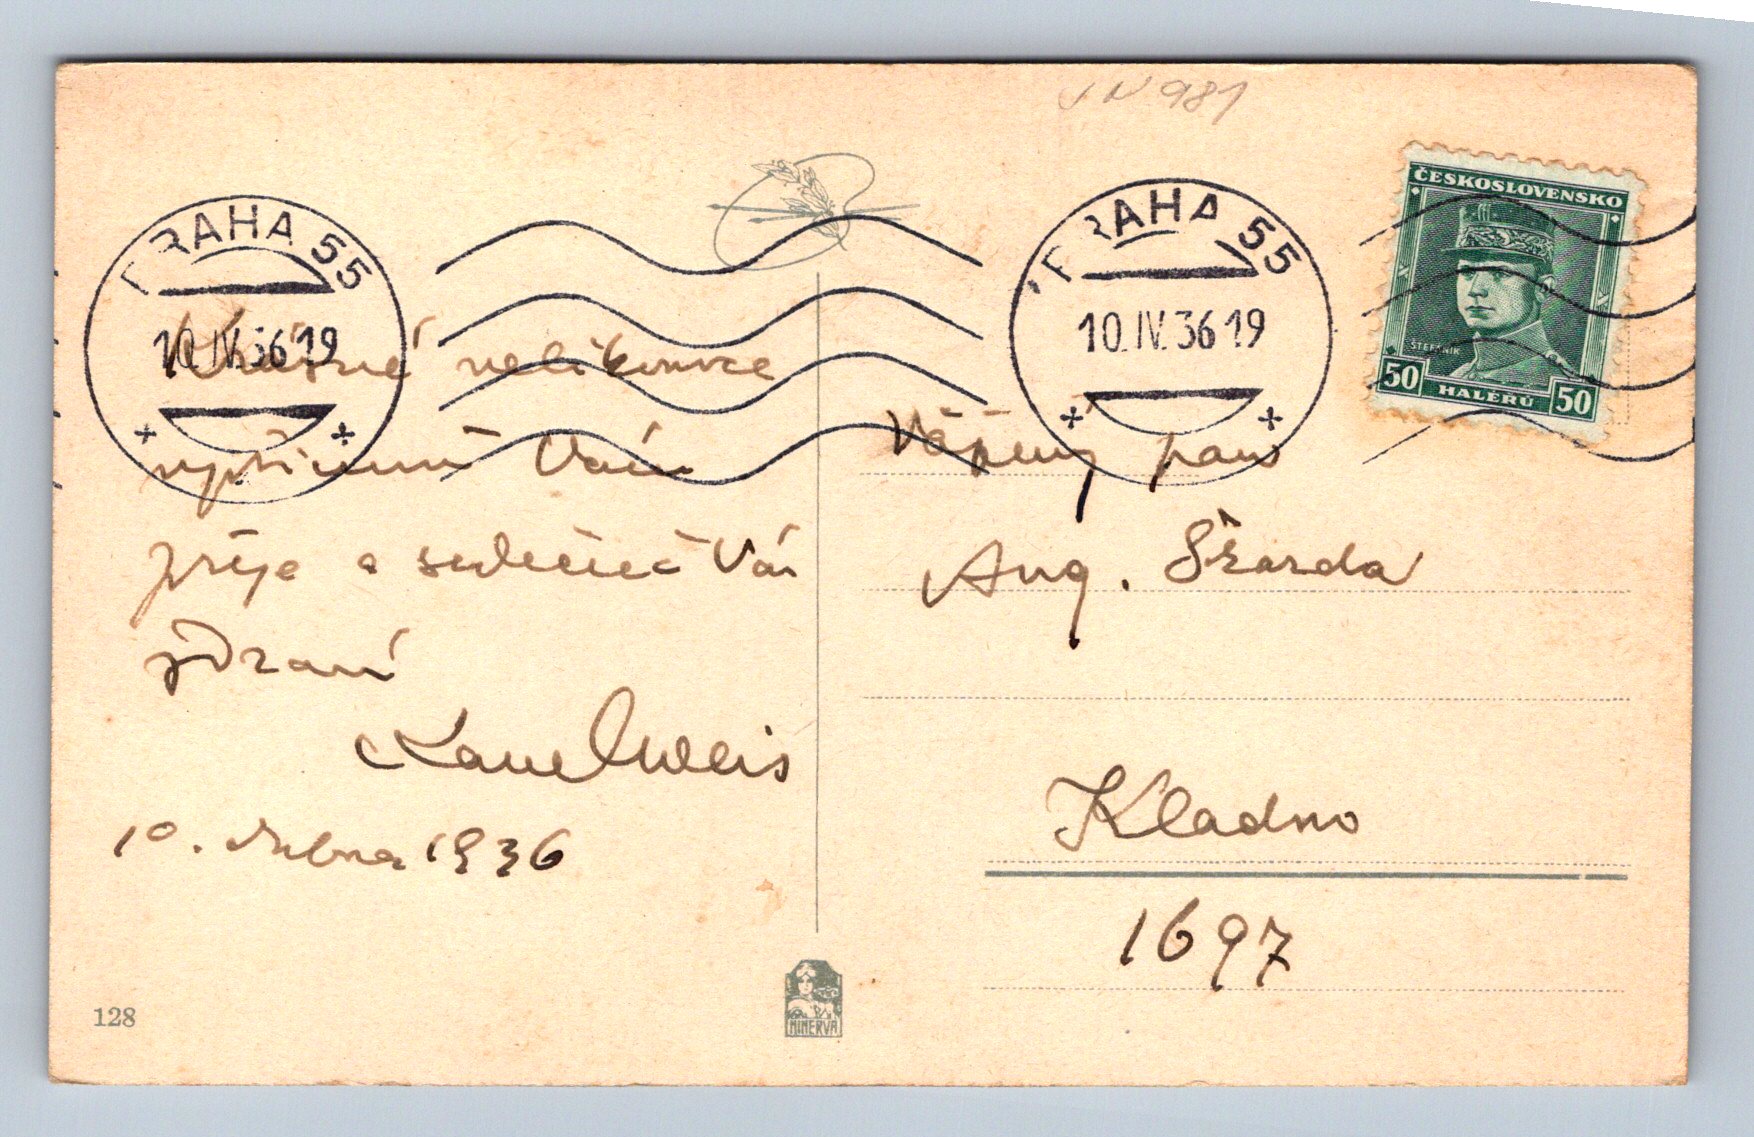 JN 981
ČESKOSLOVENSKO
ŠTEFÁNIK
50 HALÉŘŮ 50
PRAHA 55
10.IV.36 19
PRAHA 55
10.IV.36 19
Krásné velikonoce
upřímně Vám
přeje a srdečně Vás
zdraví
Karel Weis
10. dubna 1936
128
MINERVA
Vážený pan
Aug. Škarda
Kladno
1697